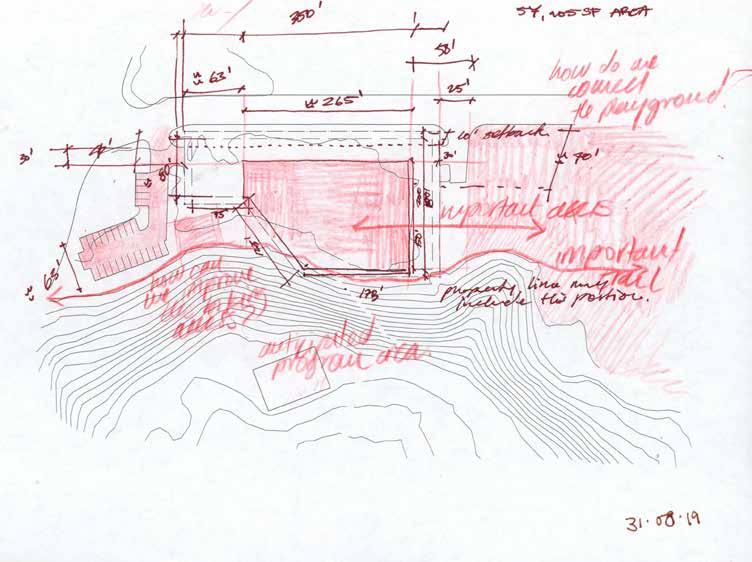 350'
1'
57,205 SF AREA
58'
± 63'
25'
± 265'
how do we
connect
to playground?
10' setback
30'
± 70'
80'
75'
important access
important
trail
63'
how can
we improve
access??
178'
property line may
include this portion.
anticipated
program area
31·08·19